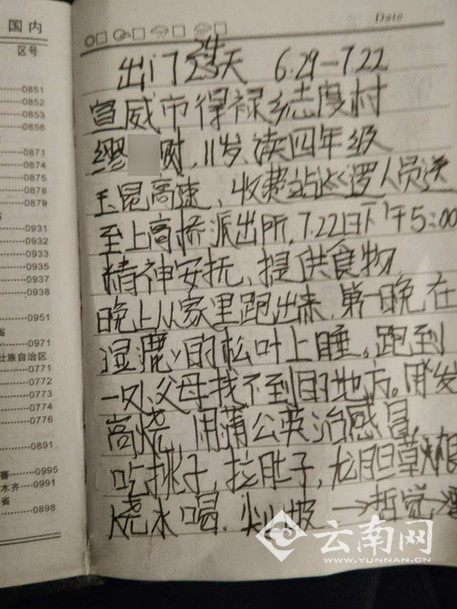 国内
区号
0851
0852
0853
0854
0855
0856
0871
0874
0875
0876
0878
0879
0931
0932
0933
0935
0937
0938
0951
省
壮族自治区
0771
0772
0773
0774
0776
0891
0995
木齐 0991
省 0898
Date
出门23天 6.29-7.22
24
宣威市得禄乡志度村
缪 财, 11岁, 读四年级
玉昆高速, 收费站巡逻人员送
至上高桥派出所, 7.22日下午5:00
精神安抚, 提供食物,
晚上从家里跑出来, 第一晚在
湿鹿的松叶上睡。跑到
一处父母找不到的地方。
发
高烧, 用蒲公英治感冒,
吃桃子, 拉肚子, 龙胆草
烧水喝.
云南网
WWW.YUNNAN.CN